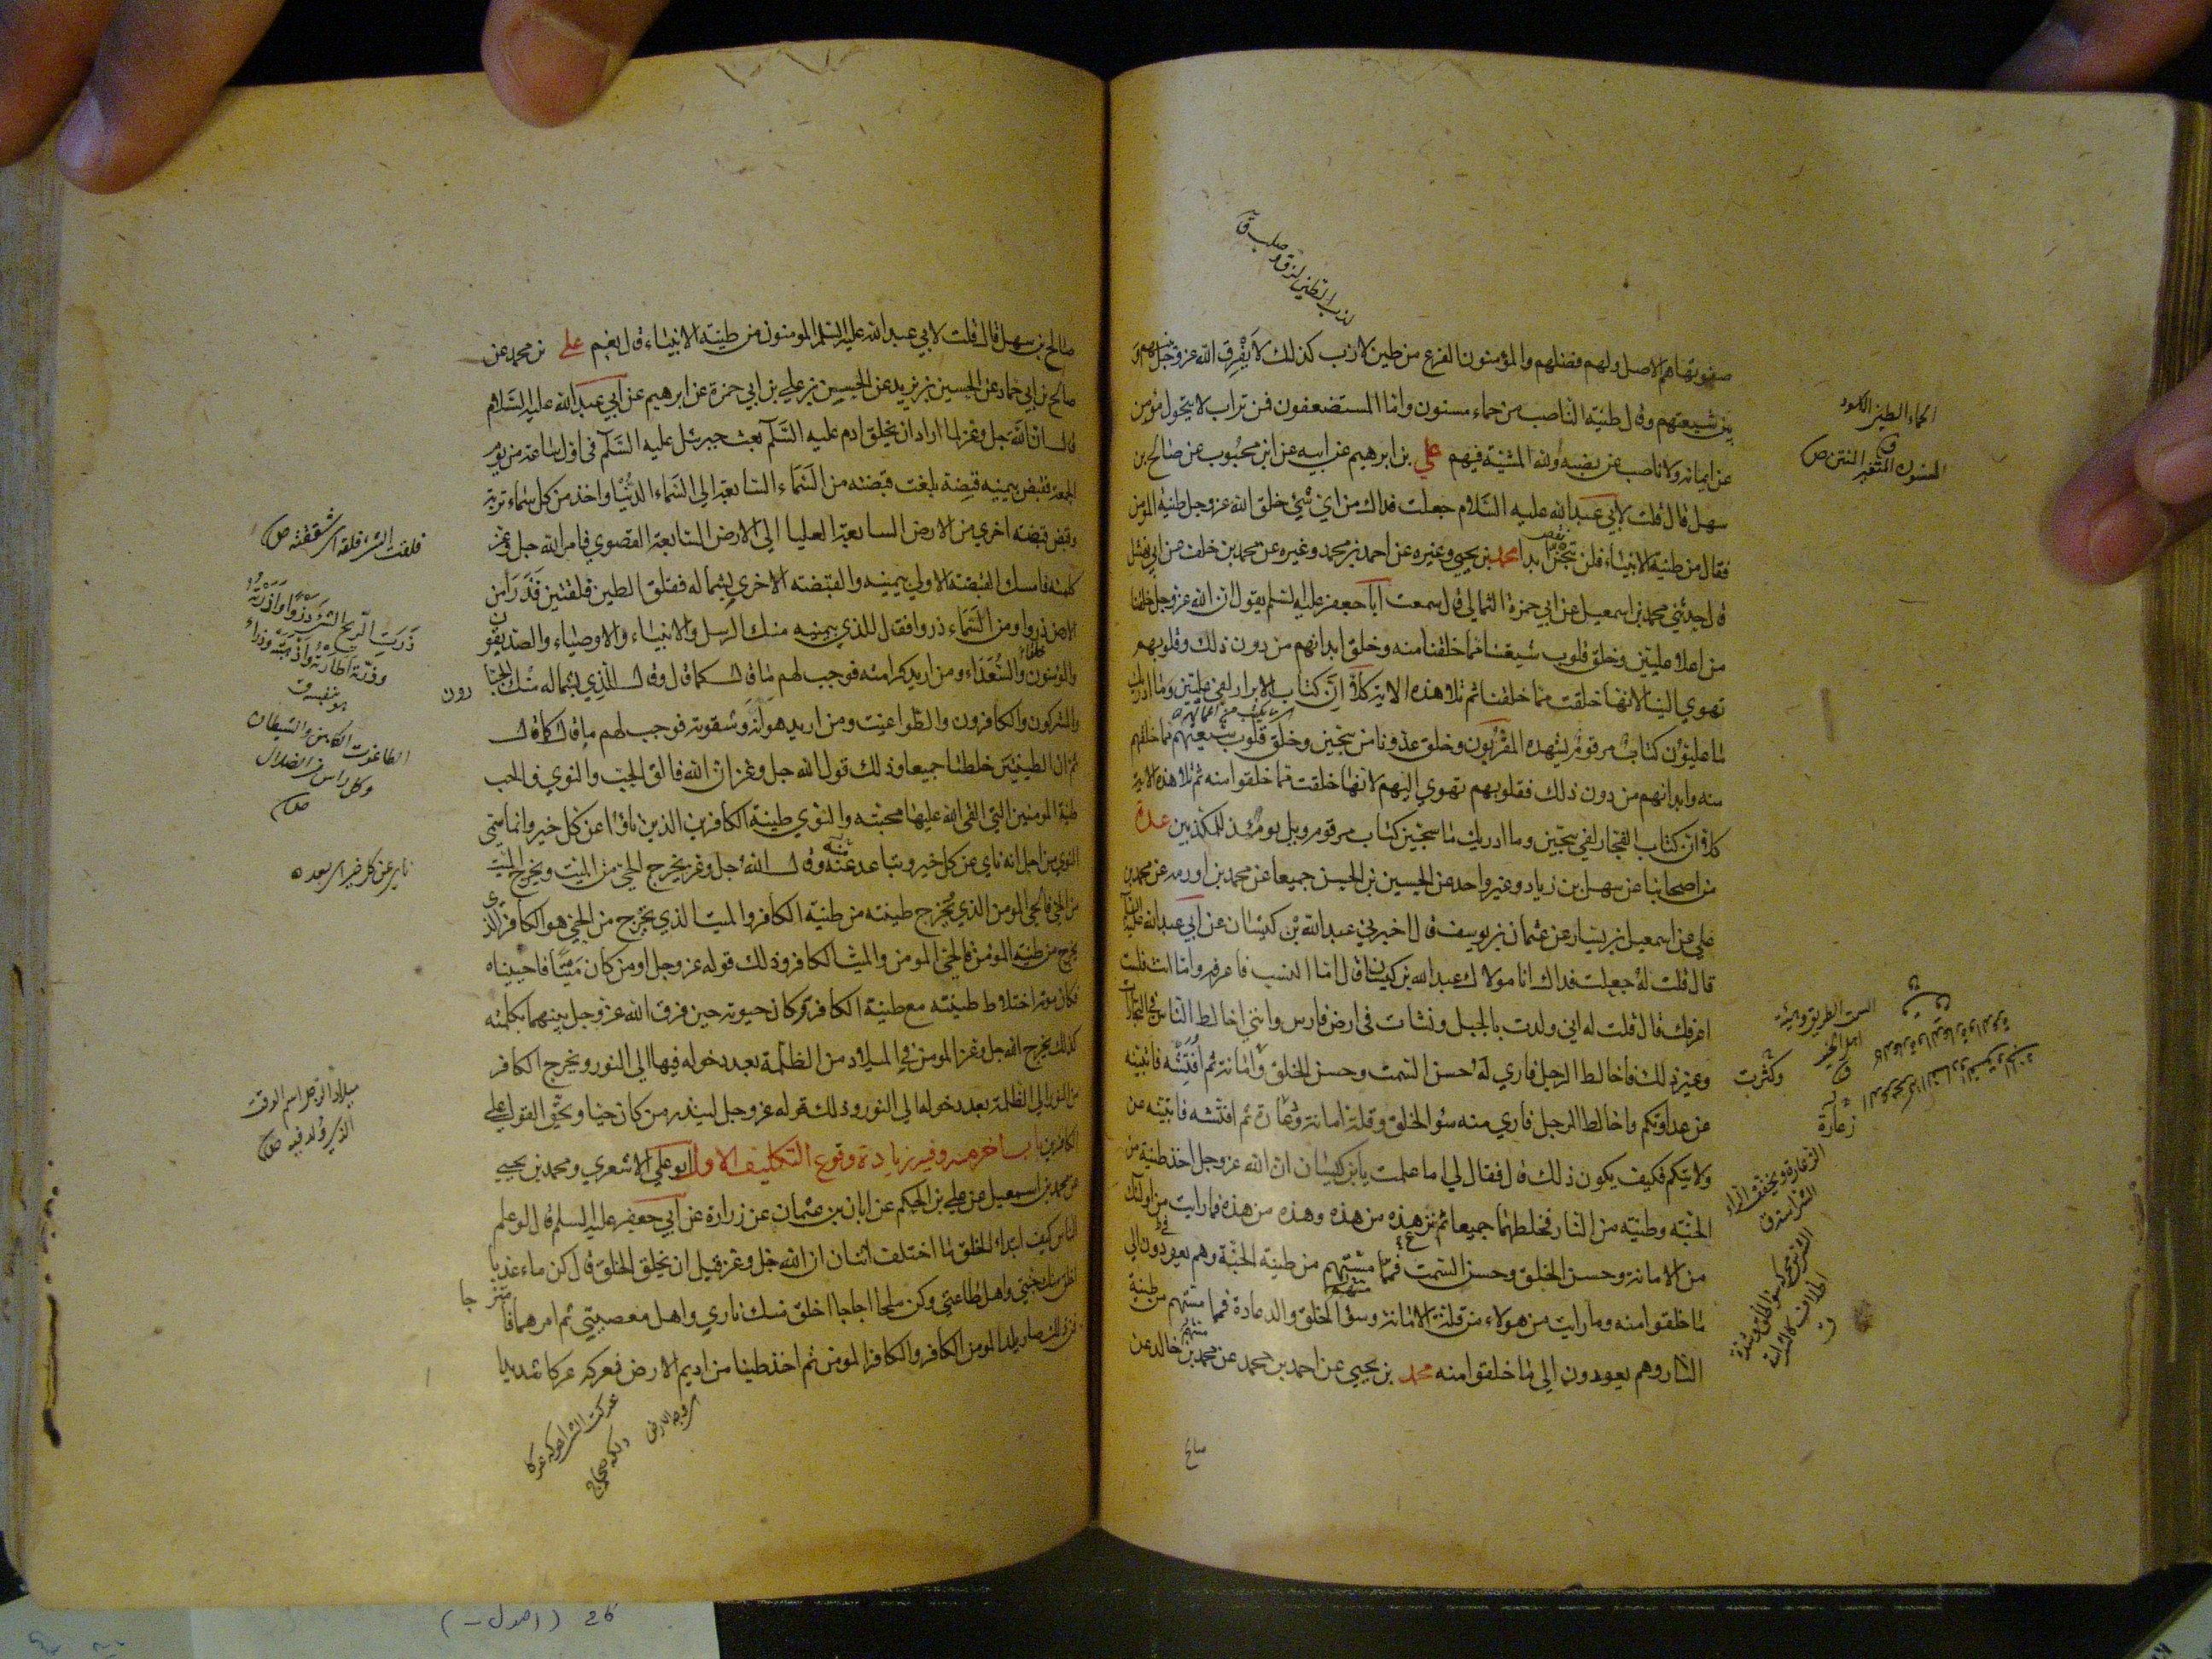 صفوتها هم الاصل ولهم فضلهم والمؤمنون الفرع من طين لازب كذلك لا يفرق الله عز وجل بينهم
بين شيعتهم وقال طينة الناصب من حماء مسنون واما المستضعفون فمن تراب لا يتحول مؤمن
عن ايمانه ولا ناصب عن نصبه ولله المشية فيهم علي بن ابرهيم عن ابيه عن ابن محبوب عن صالح بن
سهل قال قلت لابي عبد الله عليه السلام جعلت فداك من اي شيء خلق الله عز وجل طينة المؤمن
فقال من طينة الانبياء فلن تنجس ابدا محمد بن يحيى وغيره عن احمد بن محمد وغيره عن محمد بن خلف عن ابي نهشل
قال حدثني محمد بن اسمعيل عن ابي حمزة الثمالي قال سمعت ابا جعفر عليه السلم يقول ان الله عز وجل خلقنا
من اعلا عليين وخلق قلوب شيعتنا مما خلقنا منه وخلق ابدانهم من دون ذلك وقلوبهم
تهوي الينا لانها خلقت مما خلقنا ثم تلا هذه الاية كلا ان كتاب الابرار لفي عليين وما ادريك
ما عليون كتاب مرقوم يشهده المقربون وخلق عدونا من سجين وخلق قلوب شيعتهم مما خلقهم
منه وابدانهم من دون ذلك فقلوبهم تهوي اليهم لانها خلقت مما خلقوا منه ثم تلا هذه الاية
كلا ان كتاب الفجار لفي سجين وما ادريك ما سجين كتاب مرقوم ويل يومئذ للمكذبين عدة
من اصحابنا عن سهل بن زياد وغير واحد عن الحسين بن الحسن جميعا عن محمد بن اورمه عن محمد بن
علي عن اسمعيل بن يسار عن عثمان بن يوسف قال اخبرني عبد الله بن كيسان عن ابي عبد الله عليه السلم
قال قلت له جعلت فداك انا مولاك عبد الله بن كيسان قال اما النسب فاعرفه واما انت فلست
اعرفك قال قلت له اني ولدت بالجبل ونشات في ارض فارس وانني اخالط الناس في التجارات
وغير ذلك فاخالط الرجل فاري له حسن السمت وحسن الخلق وامانة ثم افتشه فاتبينه
عن عداوتكم واخالط الرجل فاري منه سؤ الخلق وقلة امانة وزعارة ثم افتشه فاتبينه عن
ولايتكم فكيف يكون ذلك قال فقال لي اما علمت يابن كيسان ان الله عز وجل اخذ طينة من
الجنة وطينة من النار فخلطهما جميعا ثم نزع هذه من هذه وهذه من هذه فما رايت من اولئك
من الامانة وحسن الخلق وحسن السمت فمما مستهم من طينة الجنة وهم يعودون الي
ما خلقوا منه وما رايت من هؤلاء من قلة الامانة وسؤ الخلق والدعارة فمما مستهم من طينة
النار وهم يعودون الي ما خلقوا منه محمد بن يحيي عن احمد بن محمد عن محمد بن خالد عن
صالح
لزب الطين لزق وصلب ق
الحماء الطين الاسود
ق
المسنون المتغير المنتن ص
السمت الطريق وهيئة
اهل الخير
ق
زعارة
صالح بن سهل قال قلت لابي عبد الله عليه السلم المومنون من طينة الانبياء قال نعم علي بن محمد عن
صالح بن ابي حماد عن الحسين بن يزيد عن الحسن بن علي بن ابي حمزة عن ابرهيم عن ابي عبد الله عليه السلام
قال ان الله جل وعز لما اراد ان يخلق ادم عليه السلم بعث جبرئيل عليه السلم في اول ساعة من يوم
الجمعة فقبض بيمينه قبضة بلغت قبضته من السماء السابعة الي السماء الدنيا واخذ من كل سماء تربة
وقبض قبضة اخري من الارض السابعة العليا الي الارض السابعة القصوي فامر الله جل وعز
كلمته فامسك القبضة الاولي بيمينه والقبضة الاخري بشماله ففلق الطين فلقتين فذرا من
الارض ذروا ومن السماء ذروا فقال للذي بيمينه منك الرسل والانبياء والاوصياء والصديقون
والمؤمنون والسعداء ومن اريد كرامته فوجب لهم ما قال كما قال وقال للذي بشماله منك الجبارون
والمشركون والكافرون والطواغيت ومن اريد هوانه وشقوته فوجب لهم ما قال كما قال
ثم ان الطينتين خلطتا جميعا وذلك قول الله جل وعز ان الله فالق الحب والنوي فالحب
طينة المومنين التي القي الله عليها محبته والنوي طينة الكافرين الذين ناوا عن كل خير وانما سمي
النوي من اجل انه ناي عن كل خير وتباعد عنه وقال الله جل وعز يخرج الحي من الميت ويخرج الميت
من الحي فالحي المومن الذي تخرج طينته من طينة الكافر والميت الذي يخرج من الحي هو الكافر الذي
يخرج من طينة المؤمن فالحي المومن والميت الكافر وذلك قوله عز وجل اومن كان ميتا فاحييناه
فكان موته اختلاط طينته مع طينة الكافر وكان حيوته حين فرق الله عز وجل بينهما بكلمته
كذلك يخرج الله جل وعز المومن في الميلاد من الظلمة بعد دخوله فيها الي النور ويخرج الكافر
من النور الي الظلمة بعد دخوله الي النور وذلك قوله عز وجل لينذر من كان حيا ويحق القول علي
الكافرين باب اخر منه وفيه زيادة وقوع التكليف الاول ابو علي الاشعري ومحمد بن يحيي
عن محمد بن اسمعيل عن علي بن الحكم عن ابان بن عثمان عن زرارة عن ابي جعفر عليه السلم قال لو علم
الناس كيف ابتداء الخلق ما اختلف اثنان ان الله جل وعز قبل ان يخلق الخلق قال كن ماء عذبا
اخلق منك جنتي واهل طاعتي وكن ملحا اجاجا اخلق منك ناري واهل معصيتي ثم امرهما فامتزجا
فمن ذلك صار يلد المومن الكافر والكافر المومن ثم اخذ طينا من اديم الارض فعركه عركا شديدا
فلقت الشيء فلقا اي شققته ص
الطاغوت الكاهن والشيطان
وكل راس في الضلال
ص
ناي عن كل خير اي بعد
ميلاد الرجل اسم الوقت
الذي ولد فيه ص
عركت الشيء اعركه عركا
دلكته صحاح